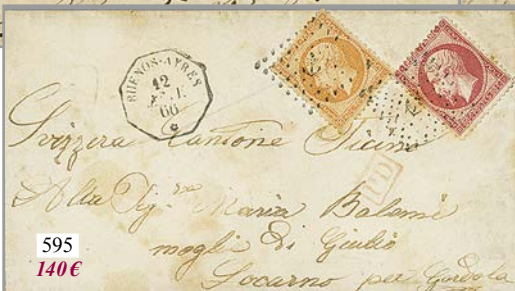 BUENOS-AYRES
12
66
Svizzera Cantone Ticino
PD
Alla Sig.ra Maria Balemi
moglie di Giulio
Locarno per Gordola
595
140€